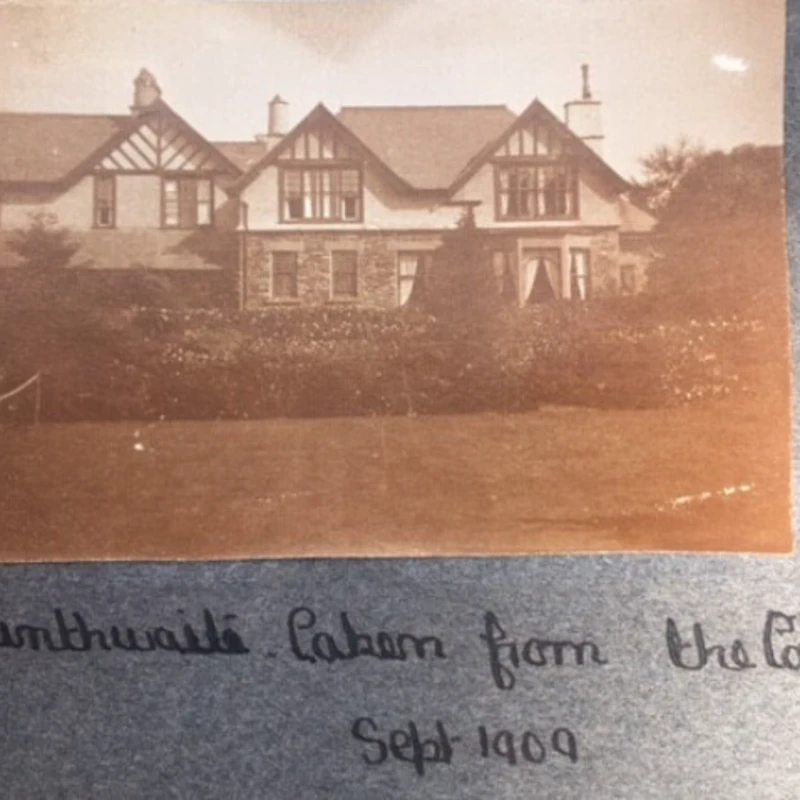 unthwaite. Taken from the
Sept 1909